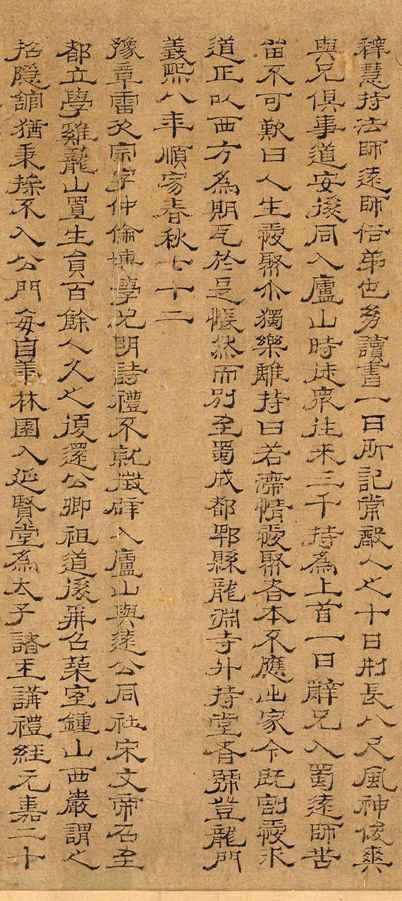 釋慧持法師遠師俗弟也多讀書一日所記常敵人之十日形長八尺風神俊爽
與兄俱事道安後同入廬山時徒衆往來三千持為上首一日辭兄入蜀遠師苦
留不可歎曰人生愛聚尒獨樂離持曰若滯情愛聚者本不應出家今既割愛求
道正以西方為期耳於是悵然而別至蜀成都郫縣龍淵寺升持堂者號登龍門
義熙八年順寂春秋七十二
豫章雷次宗字仲倫博學尤明詩禮不就徵辟入廬山與遠公同社宋文帝召至
都立學雞籠山置生員百餘人久之復還公卿祖道後再召築室鍾山西巖謂之
招隱館猶秉操不入公門每自華林園入延賢堂為太子諸王講禮經元嘉二十